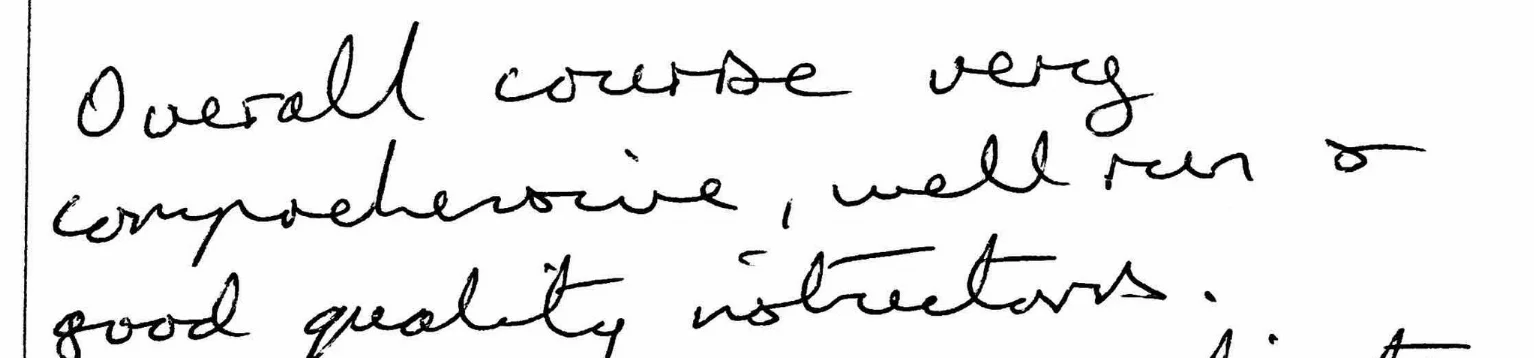 Overall course very
comprehensive, well run &
good quality instructors.